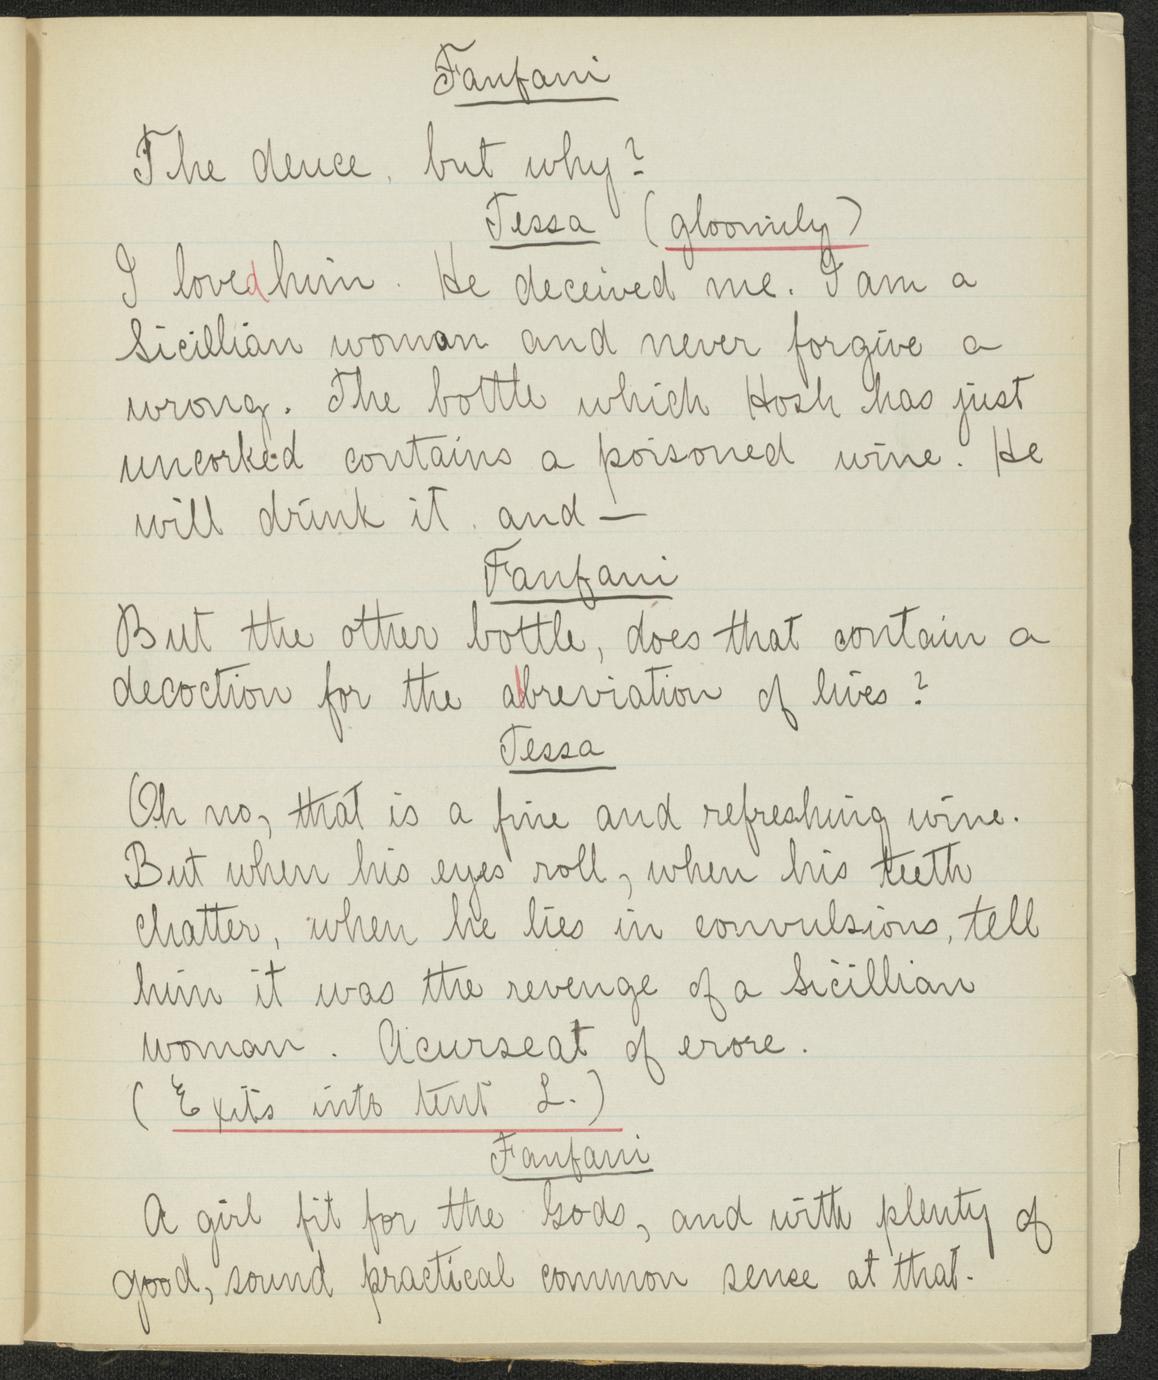 Fanfani
The deuce, but why?
Tessa (gloomily)
I loved him. He deceived me. I am a
Sicillian woman and never forgive a
wrong. The bottle which Hosh has just
uncorked contains a poisoned wine. He
will drink it, and —
Fanfani
But the other bottle, does that contain a
decoction for the abbreviation of lives?
Tessa
Oh no, that is a fine and refreshing wine.
But when his eyes roll, when his teeth
chatter, when he lies in convulsions, tell
him it was the revenge of a Sicillian
woman. Acurseat of erore.
(Exits into tent L.)
Fanfani
A girl fit for the Gods, and with plenty of
good, sound practical common sense at that.